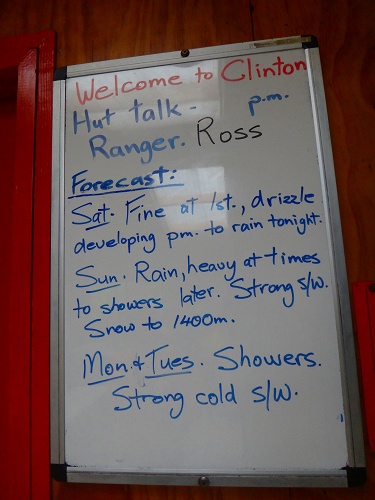 Welcome to Clinton
Hut talk - p.m.
Ranger. Ross
Forecast:
Sat. Fine at 1st., drizzle
developing pm. to rain tonight.
Sun. Rain, heavy at times
to showers later. Strong s/w.
Snow to 1400m.
Mon. & Tues. Showers.
Strong cold s/w.